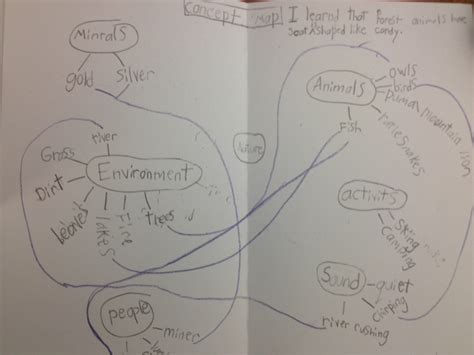 concept map
I learned that Forest animals have
scat shaped like candy.
Minrals
gold
silver
Animals
owls
birds
puma mountain lion
rattlesnakes
Fish
Nature
Environment
river
Grass
Dirt
leaves
lakes
Fire
trees
activits
Skiing
Camping
Sound
quiet
chirping
river rushing
people
miner